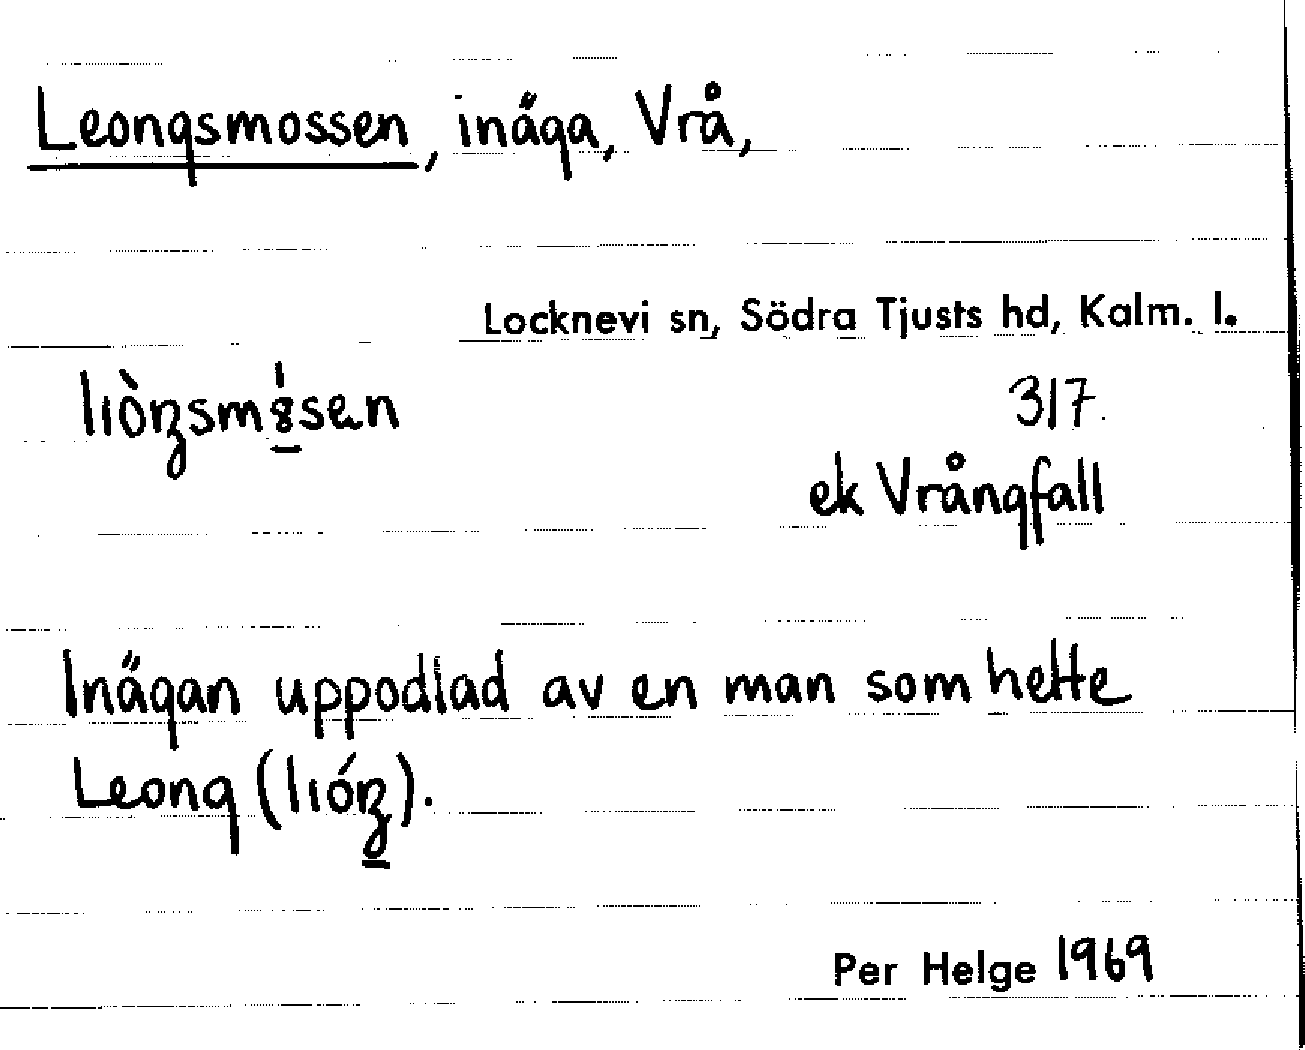 Leongsmossen, inäga, Vrå,
Locknevi sn, Södra Tjusts hd, Kalm. l.
317
ek Vrångfall
Inägan uppodlad av en man som hette
Leong (lıóŋ).
Per Helge 1969